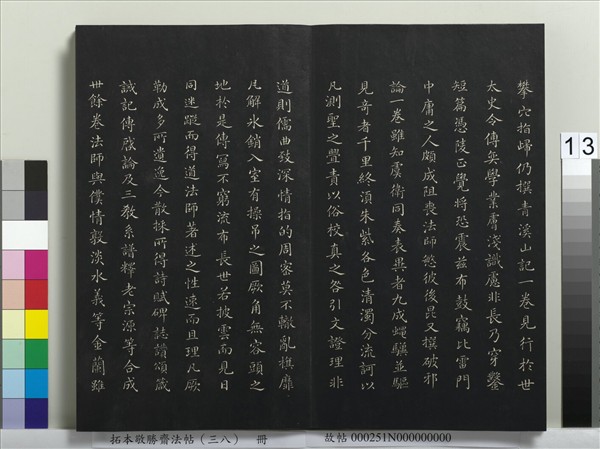 攀穴指歸仍撰青溪山記一卷見行於世
太史令傅奕學業膚淺識慮非長乃穿鑿
短篇憑陵正覺將恐震茲布鼓竊比雷門
中庸之人頗成阻喪法師愍彼後昆又撰破邪
論一卷雖知虞衛同奏表異者九成蠅驥並驅
見奇者千里終須朱紫各色清濁分流訶以
凡測聖之舋責以俗校真之咎引文證理非
道則儒曲發深情指的周密莫不轍亂旗靡
瓦解氷銷入室有操矛之圖厥角無容頭之
地於是傳寫不窮流布長世若披雲而見日
同迷蹤而得道法師著述之性速而且理凡厥
勒成多所遺逸今散採所得詩賦碑誌讚頌箴
誡記傳啟論及三教系譜釋老宗源等合成
卅餘卷法師與僕情敦淡水義等金蘭雖
拓本敬勝齋法帖（三八） 冊
故帖 000251N000000000
13